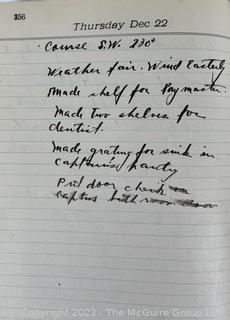 356
Thursday Dec 22
Course S.W. 230°
Weather fair. Wind Easterly
Made shelf for Paymaster.
Made two shelves for
dentist.
Made grating for sink in
captains pantry
Put door check on
captns bath room door
Copyright 2023 - The McGuire Group LLC